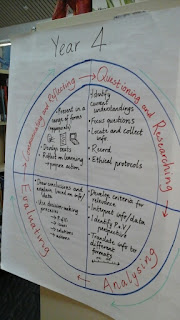 Year 4
Communicating and Reflecting
Present in a
range of forms
Display texts
Reflect on learning
→ propose action
Questioning and Researching
Identify
current
understandings
• Focus questions
• Locate and collect
info
• Record
• Ethical protocols
Evaluating
• Draw conclusions and
explain based on info/
data
• Use decision making
process
Analysing
• Develop criteria for
relevance
• Interpret info/data
• Identify P.o.V/
perspective
• Translate info to
different
formats